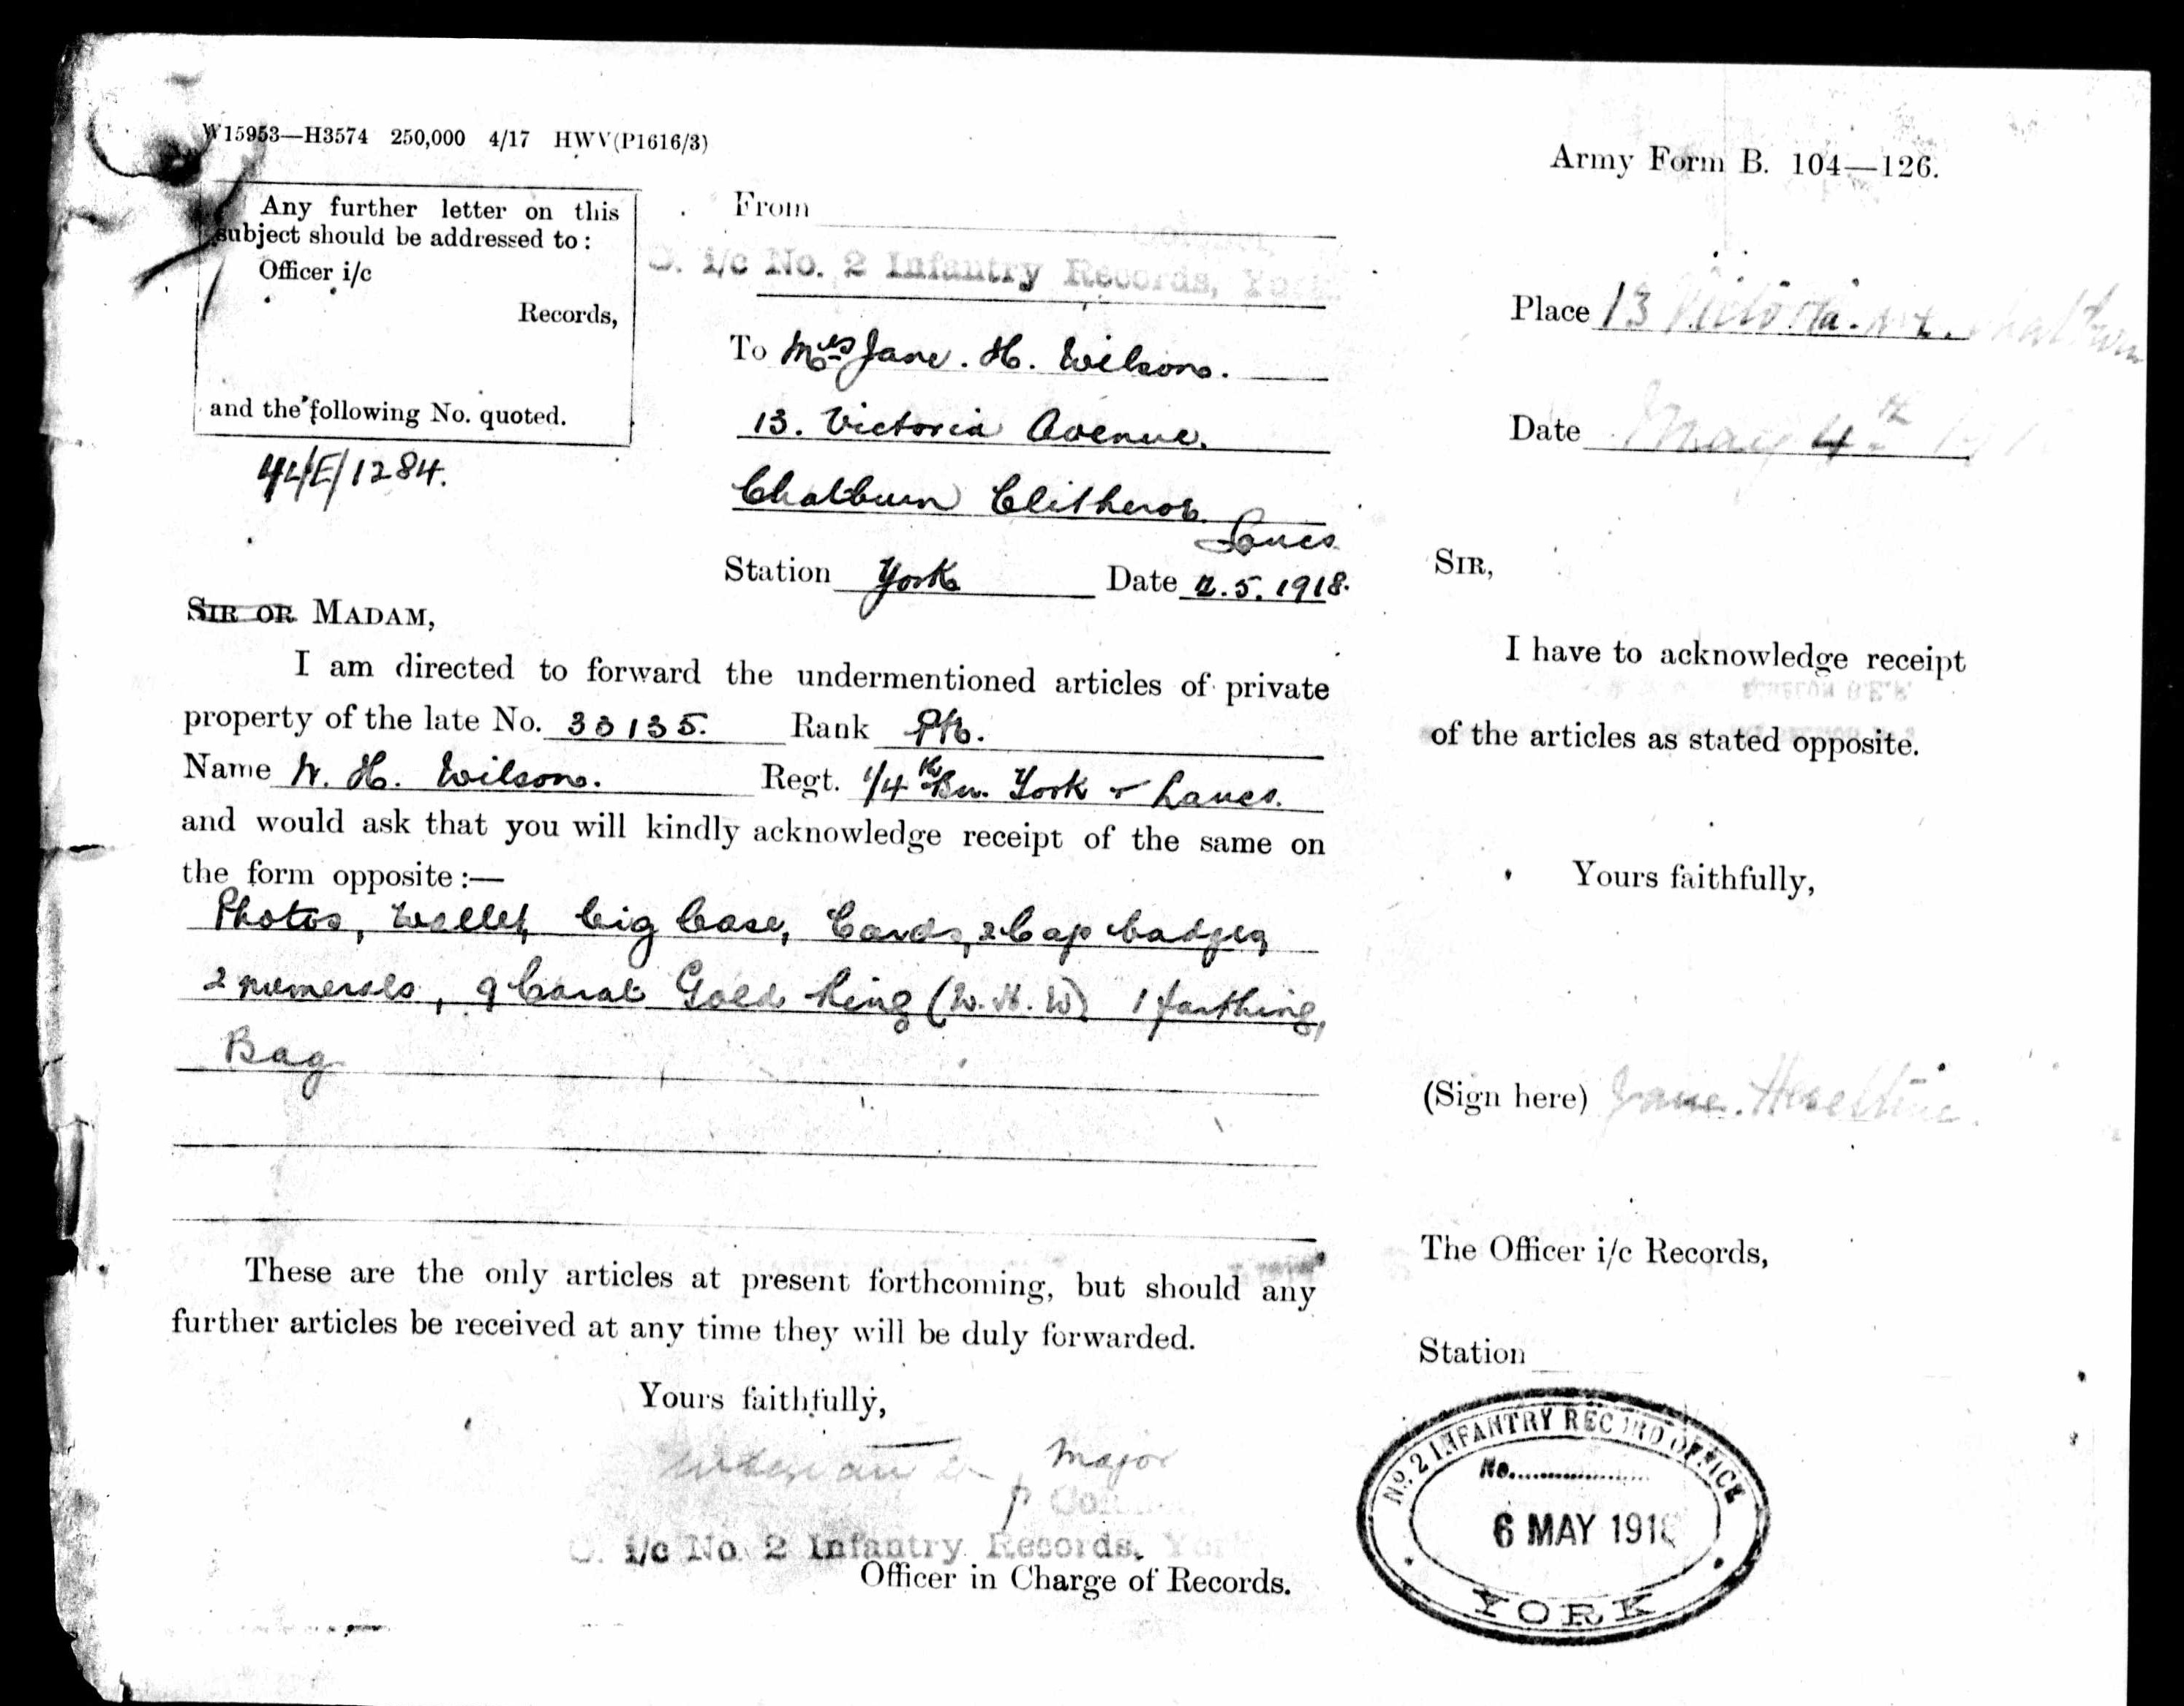 W15953—H3574 250,000 4/17 HWV(P1616/3)
Army Form B. 104—126.
Any further letter on this
subject should be addressed to:
Officer i/c
Records,
and the following No. quoted.
44/E/1284.
From
Colonel,
O. i/c No. 2 Infantry Records, York.
To Mrs Jane. H. Wilson.
13. Victoria Avenue.
Chatburn Clitheroe.
Lancs
Station York Date 2.5.1918.
SIR OR MADAM,
I am directed to forward the undermentioned articles of private
property of the late No. 33135. Rank Pte.
Name W. H. Wilson. Regt. 1/4th Bn. York & Lancs.
and would ask that you will kindly acknowledge receipt of the same on
the form opposite:—
Photos, Wallet, Cig Case, Cards, 2 Cap badges,
2 numerals, 9 Carat Gold Ring (W.H.W) 1 farthing,
Bag
These are the only articles at present forthcoming, but should any
further articles be received at any time they will be duly forwarded.
Yours faithfully,
Major
p
O. i/c No. 2 Infantry Records, York
Officer in Charge of Records.
Place 13 Victoria. Chatburn
Date May 4th
SIR,
I have to acknowledge receipt
of the articles as stated opposite.
Yours faithfully,
(Sign here) Jane. Heseltine.
The Officer i/c Records,
Station
No. 2 INFANTRY RECORD OFFICE
No.
6 MAY 1918
YORK